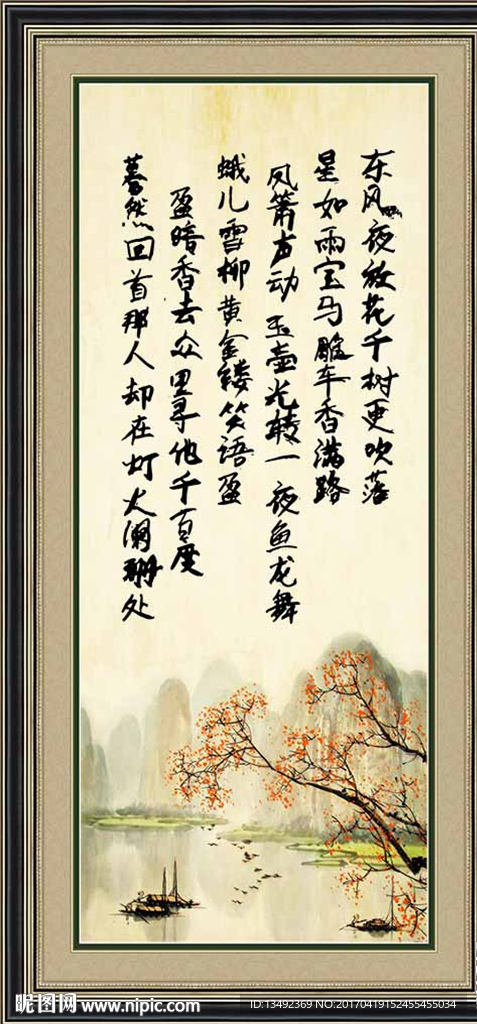 东风夜放花千树更吹落
星如雨宝马雕车香满路
凤箫声动玉壶光转一夜鱼龙舞
蛾儿雪柳黄金缕笑语盈
盈暗香去众里寻他千百度
蓦然回首那人却在灯火阑珊处
昵图网 www.nipic.com
ID:13492369 NO:20170419152455455034